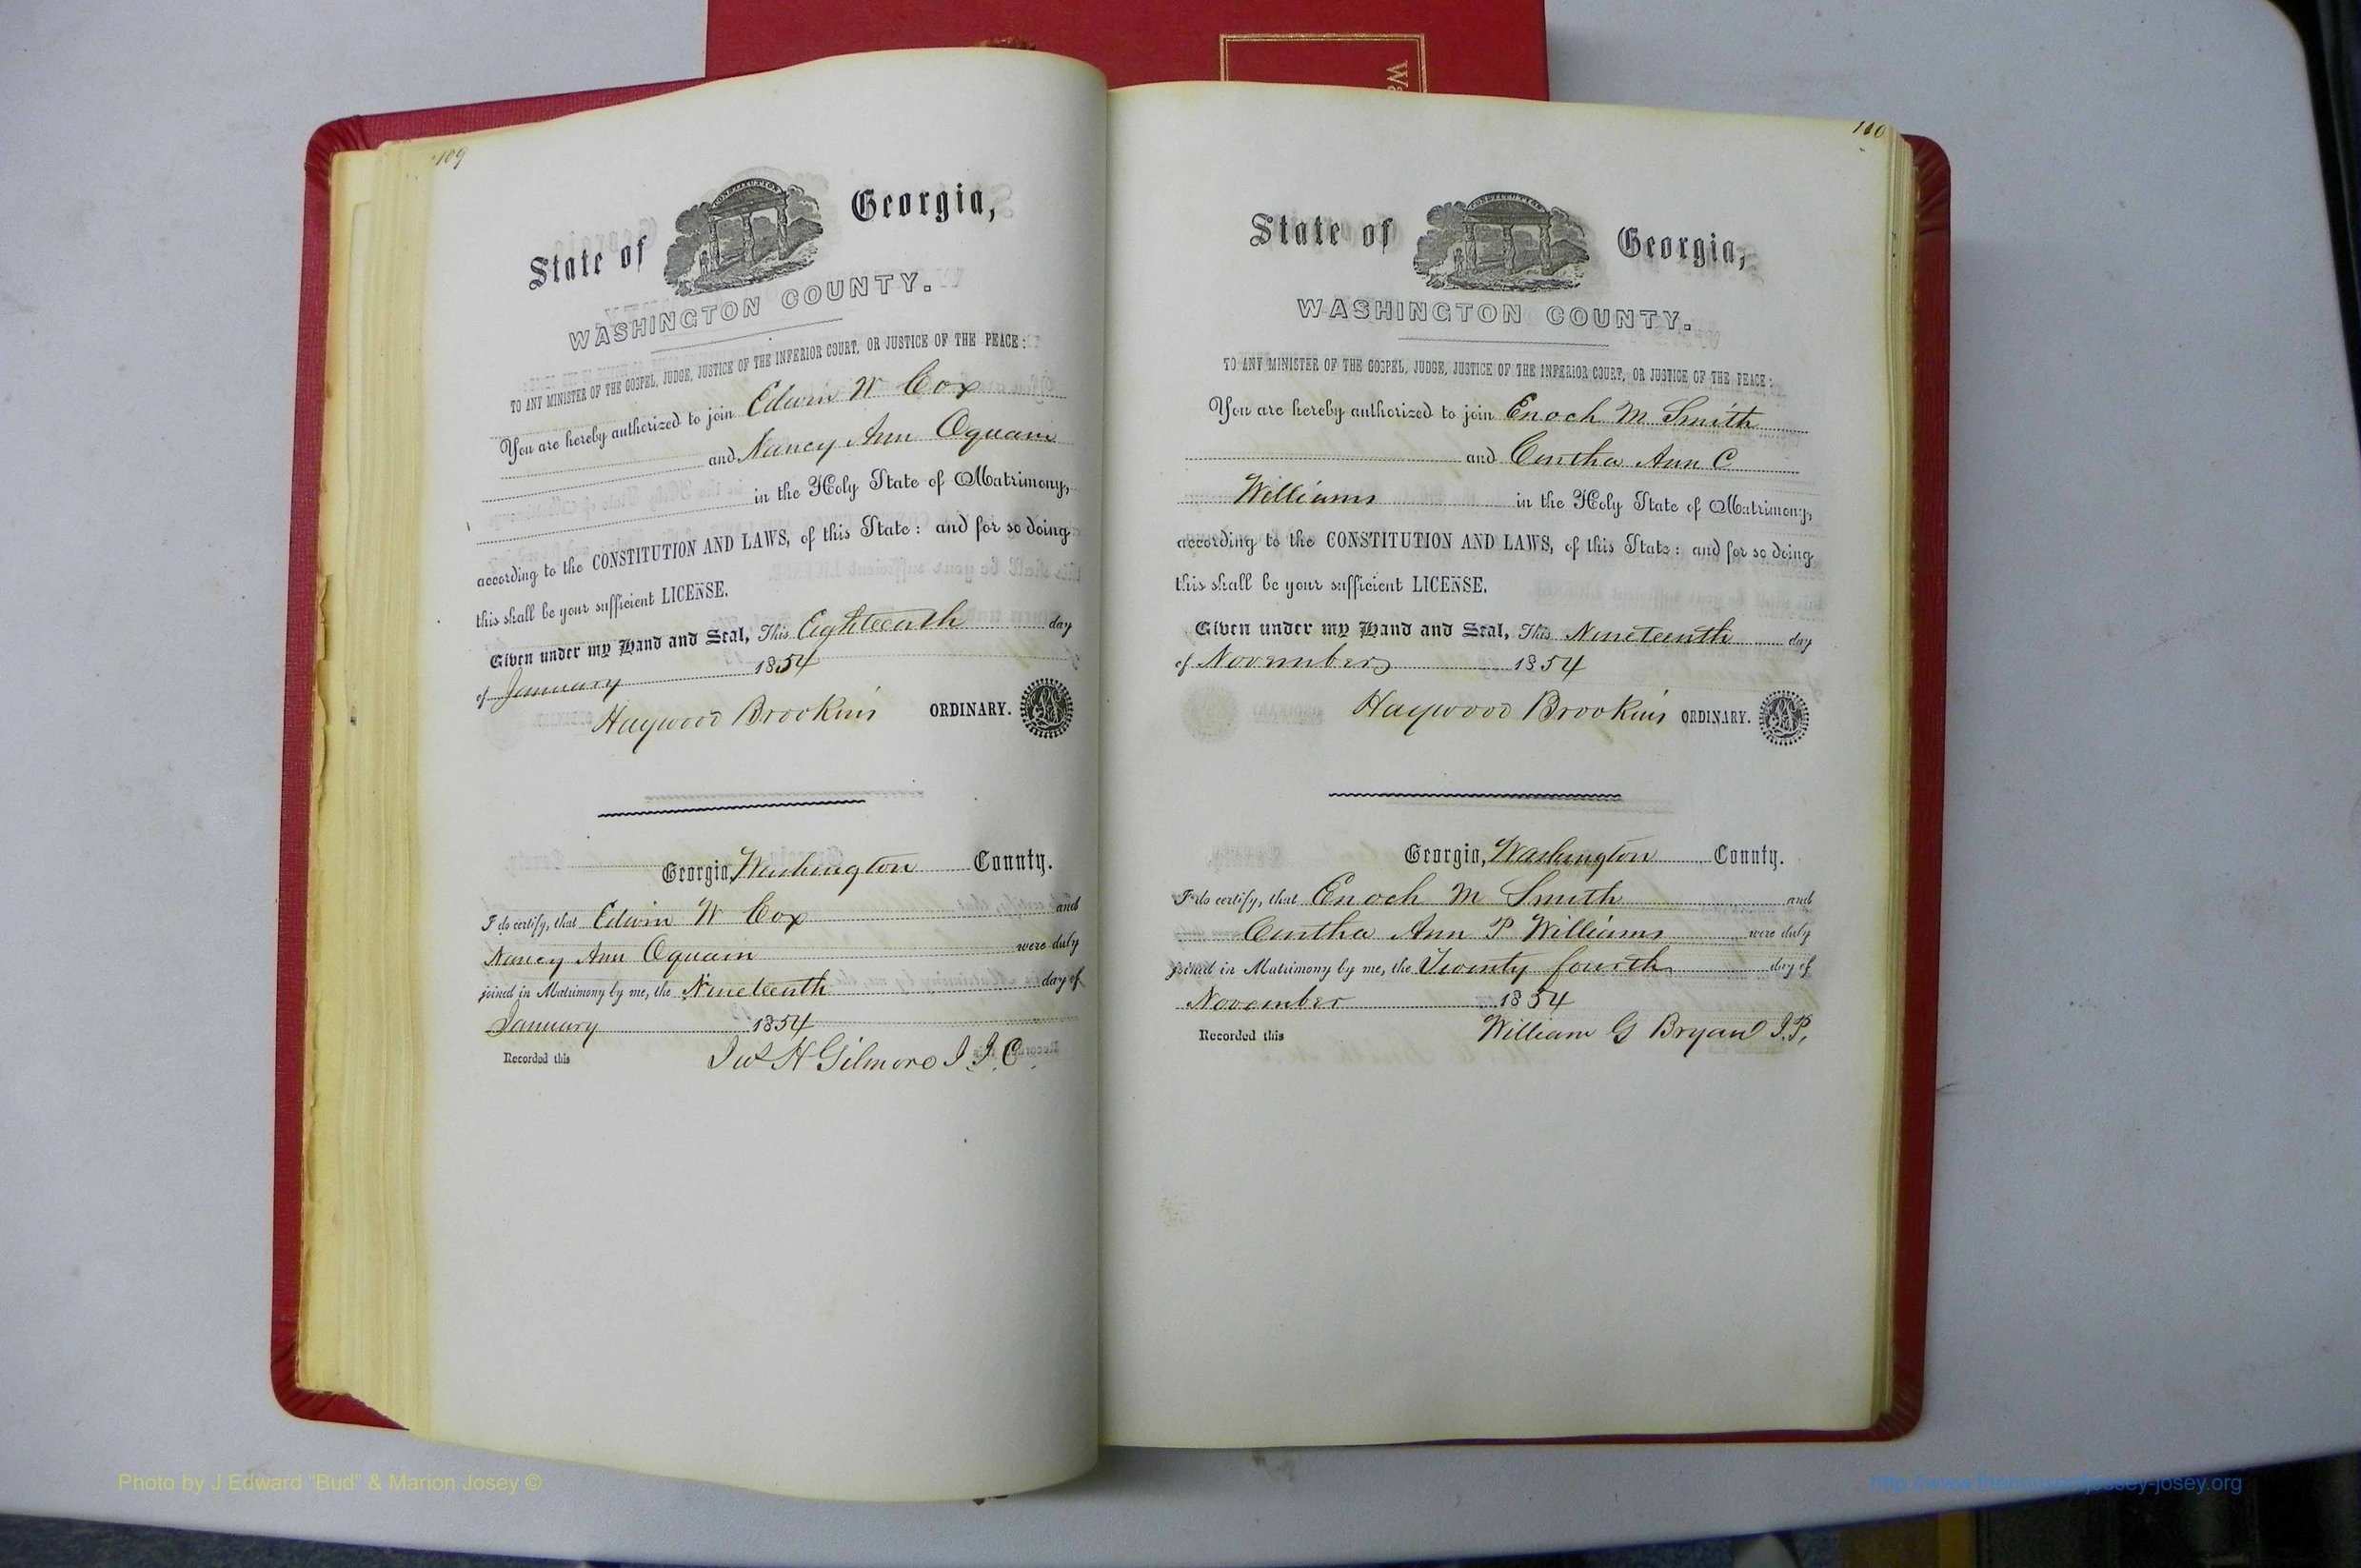 109
CONSTITUTION
State of Georgia,
WASHINGTON COUNTY.
TO ANY MINISTER OF THE GOSPEL, JUDGE, JUSTICE OF THE INFERIOR COURT, OR JUSTICE OF THE PEACE:
You are hereby authorized to join Edwin W Cox
and Nancy Ann Oquain
in the Holy State of Matrimony,
according to the CONSTITUTION AND LAWS, of this State: and for so doing
this shall be your sufficient LICENSE.
Given under my Hand and Seal, This Eighteenth day
of January 1854
Haywood Brookins ORDINARY.
Georgia, Washington County.
I do certify, that Edwin W Cox and
Nancy Ann Oquain were duly
joined in Matrimony by me, the Nineteenth day of
January 1854
Recorded this H Gilmore J. I. C.
110
CONSTITUTION
State of Georgia,
WASHINGTON COUNTY.
TO ANY MINISTER OF THE GOSPEL, JUDGE, JUSTICE OF THE INFERIOR COURT, OR JUSTICE OF THE PEACE:
You are hereby authorized to join Enoch M Smith
and Cintha Ann C
Williams in the Holy State of Matrimony,
according to the CONSTITUTION AND LAWS, of this State: and for so doing
this shall be your sufficient LICENSE.
Given under my Hand and Seal, This Nineteenth day
of November 1854
Haywood Brookins ORDINARY.
Georgia, Washington County.
I do certify, that Enoch M Smith and
Cintha Ann P Williams were duly
joined in Matrimony by me, the Twenty fourth day of
November 1854
Recorded this William G Bryan J.P,
Photo by J Edward "Bud" & Marion Josey ©